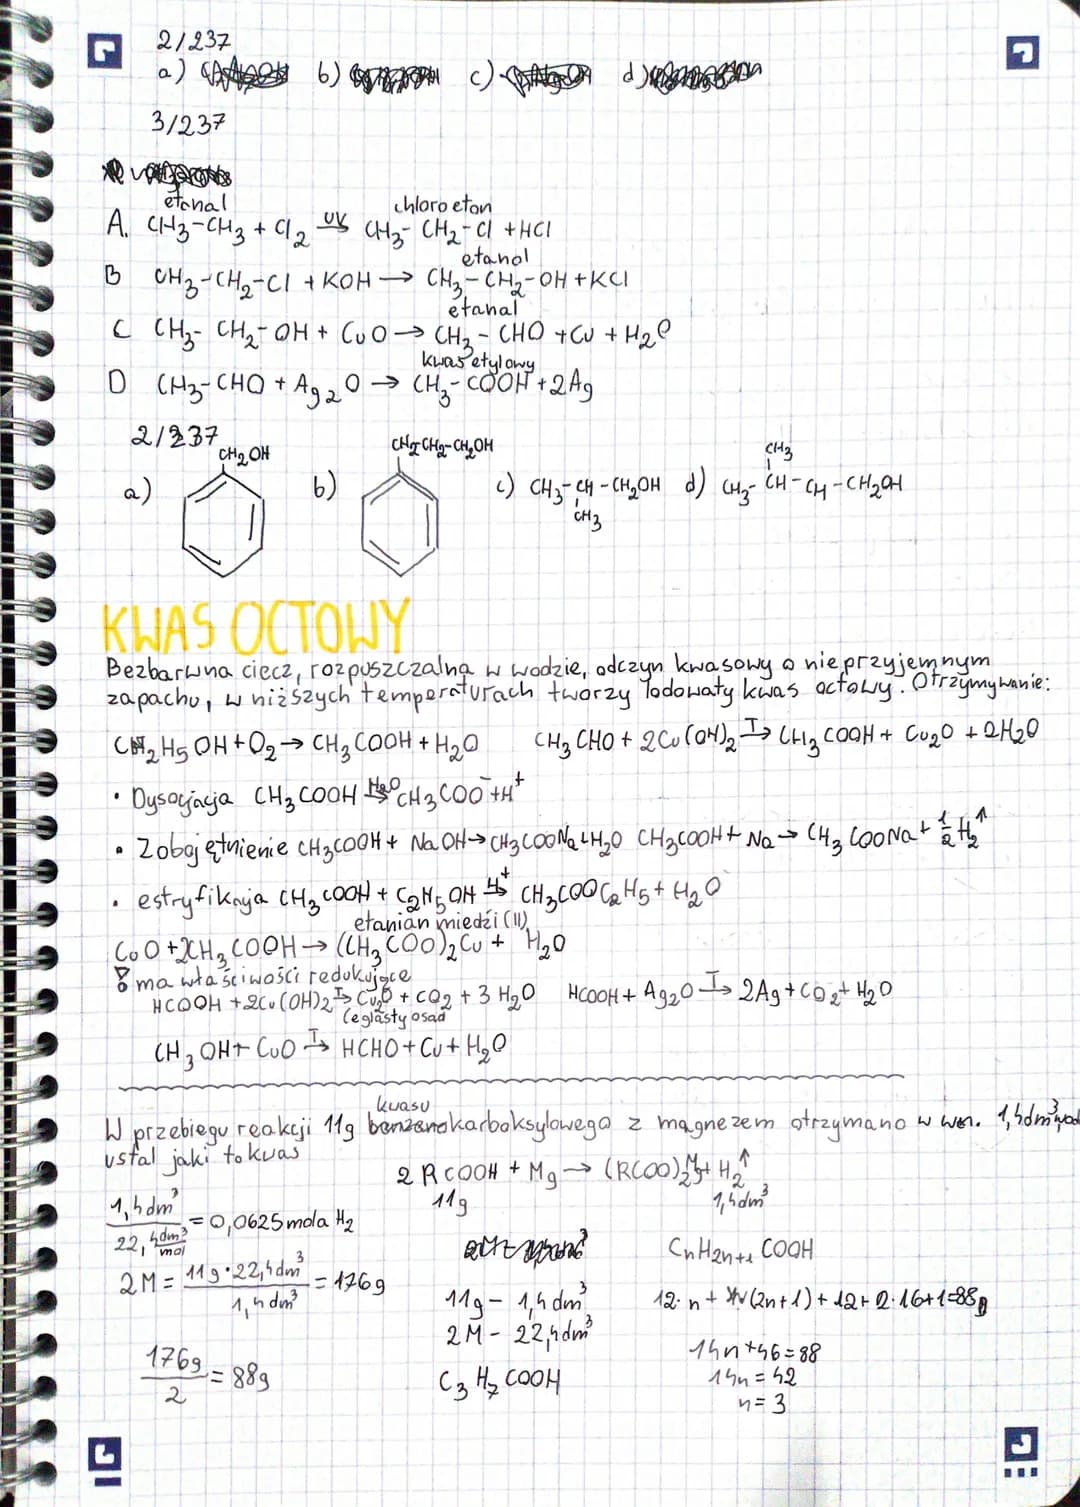 2/237
a) b) c) d)
3/237
etanal chloroetan
A. CH₃-CH₃ + Cl₂ UV→ CH₃-CH₂-Cl + HCl
etanol
B CH₃-CH₂-Cl + KOH → CH₃-CH₂-OH + KCl
etanal
C CH₃-CH₂-OH + CuO → CH₃-CHO + Cu + H₂O
kwas etylowy
D CH₃-CHO + Ag₂O → CH₃-COOH + 2Ag
2/237
CH₂OH CH₂-CH₂-CH₂OH CH₃
a) b) c) CH₃-CH-CH₂OH d) CH₃-CH-CH-CH₂OH
CH₃
KWAS OCTOWY
Bezbarwna ciecz, rozpuszczalna w wodzie, odczyn kwasowy o nieprzyjemnym
zapachu, w niższych temperaturach tworzy lodowaty kwas octowy. Otrzymywanie:
C₂H₅OH + O₂ → CH₃COOH + H₂O CH₃CHO + 2Cu(OH)₂ T→ CH₃COOH + Cu₂O + 2H₂O
• Dysocjacja CH₃COOH H₂O→ CH₃COO⁻ + H⁺
• Zobojętnienie CH₃COOH + NaOH → CH₃COONa + H₂O CH₃COOH + Na → CH₃COONa + 1/2 H₂↑
• estryfikacja CH₃COOH + C₂H₅OH H⁺→ CH₃COOC₂H₅ + H₂O
etanian miedzi (II)
CuO + 2CH₃COOH → (CH₃COO)₂Cu + H₂O
! ma właściwości redukujące
HCOOH + 2Cu(OH)₂ T→ Cu₂O + CO₂ + 3H₂O HCOOH + Ag₂O T→ 2Ag + CO₂ + H₂O
ceglasty osad
CH₃OH + CuO T→ HCHO + Cu + H₂O
kwasu
W przebiegu reakcji 11g karboksylowego z magnezem otrzymano w war. 1,4dm³ wod
ustal jaki to kwas
2RCOOH + Mg → (RCOO)₂Mg + H₂↑
11g 1,4dm³
1,4dm³ / 22,4 dm³/mol = 0,0625 mola H₂
CnH2n+1 COOH
2M = 11g·22,4dm³ / 1,4dm³ = 176g
11g - 1,4dm³ 12·n + (2n+1) + 12 + 2·16 + 1 = 88g
2M - 22,4dm³
176g / 2 = 88g
C₃H₇COOH
14n + 46 = 88
14n = 42
n = 3